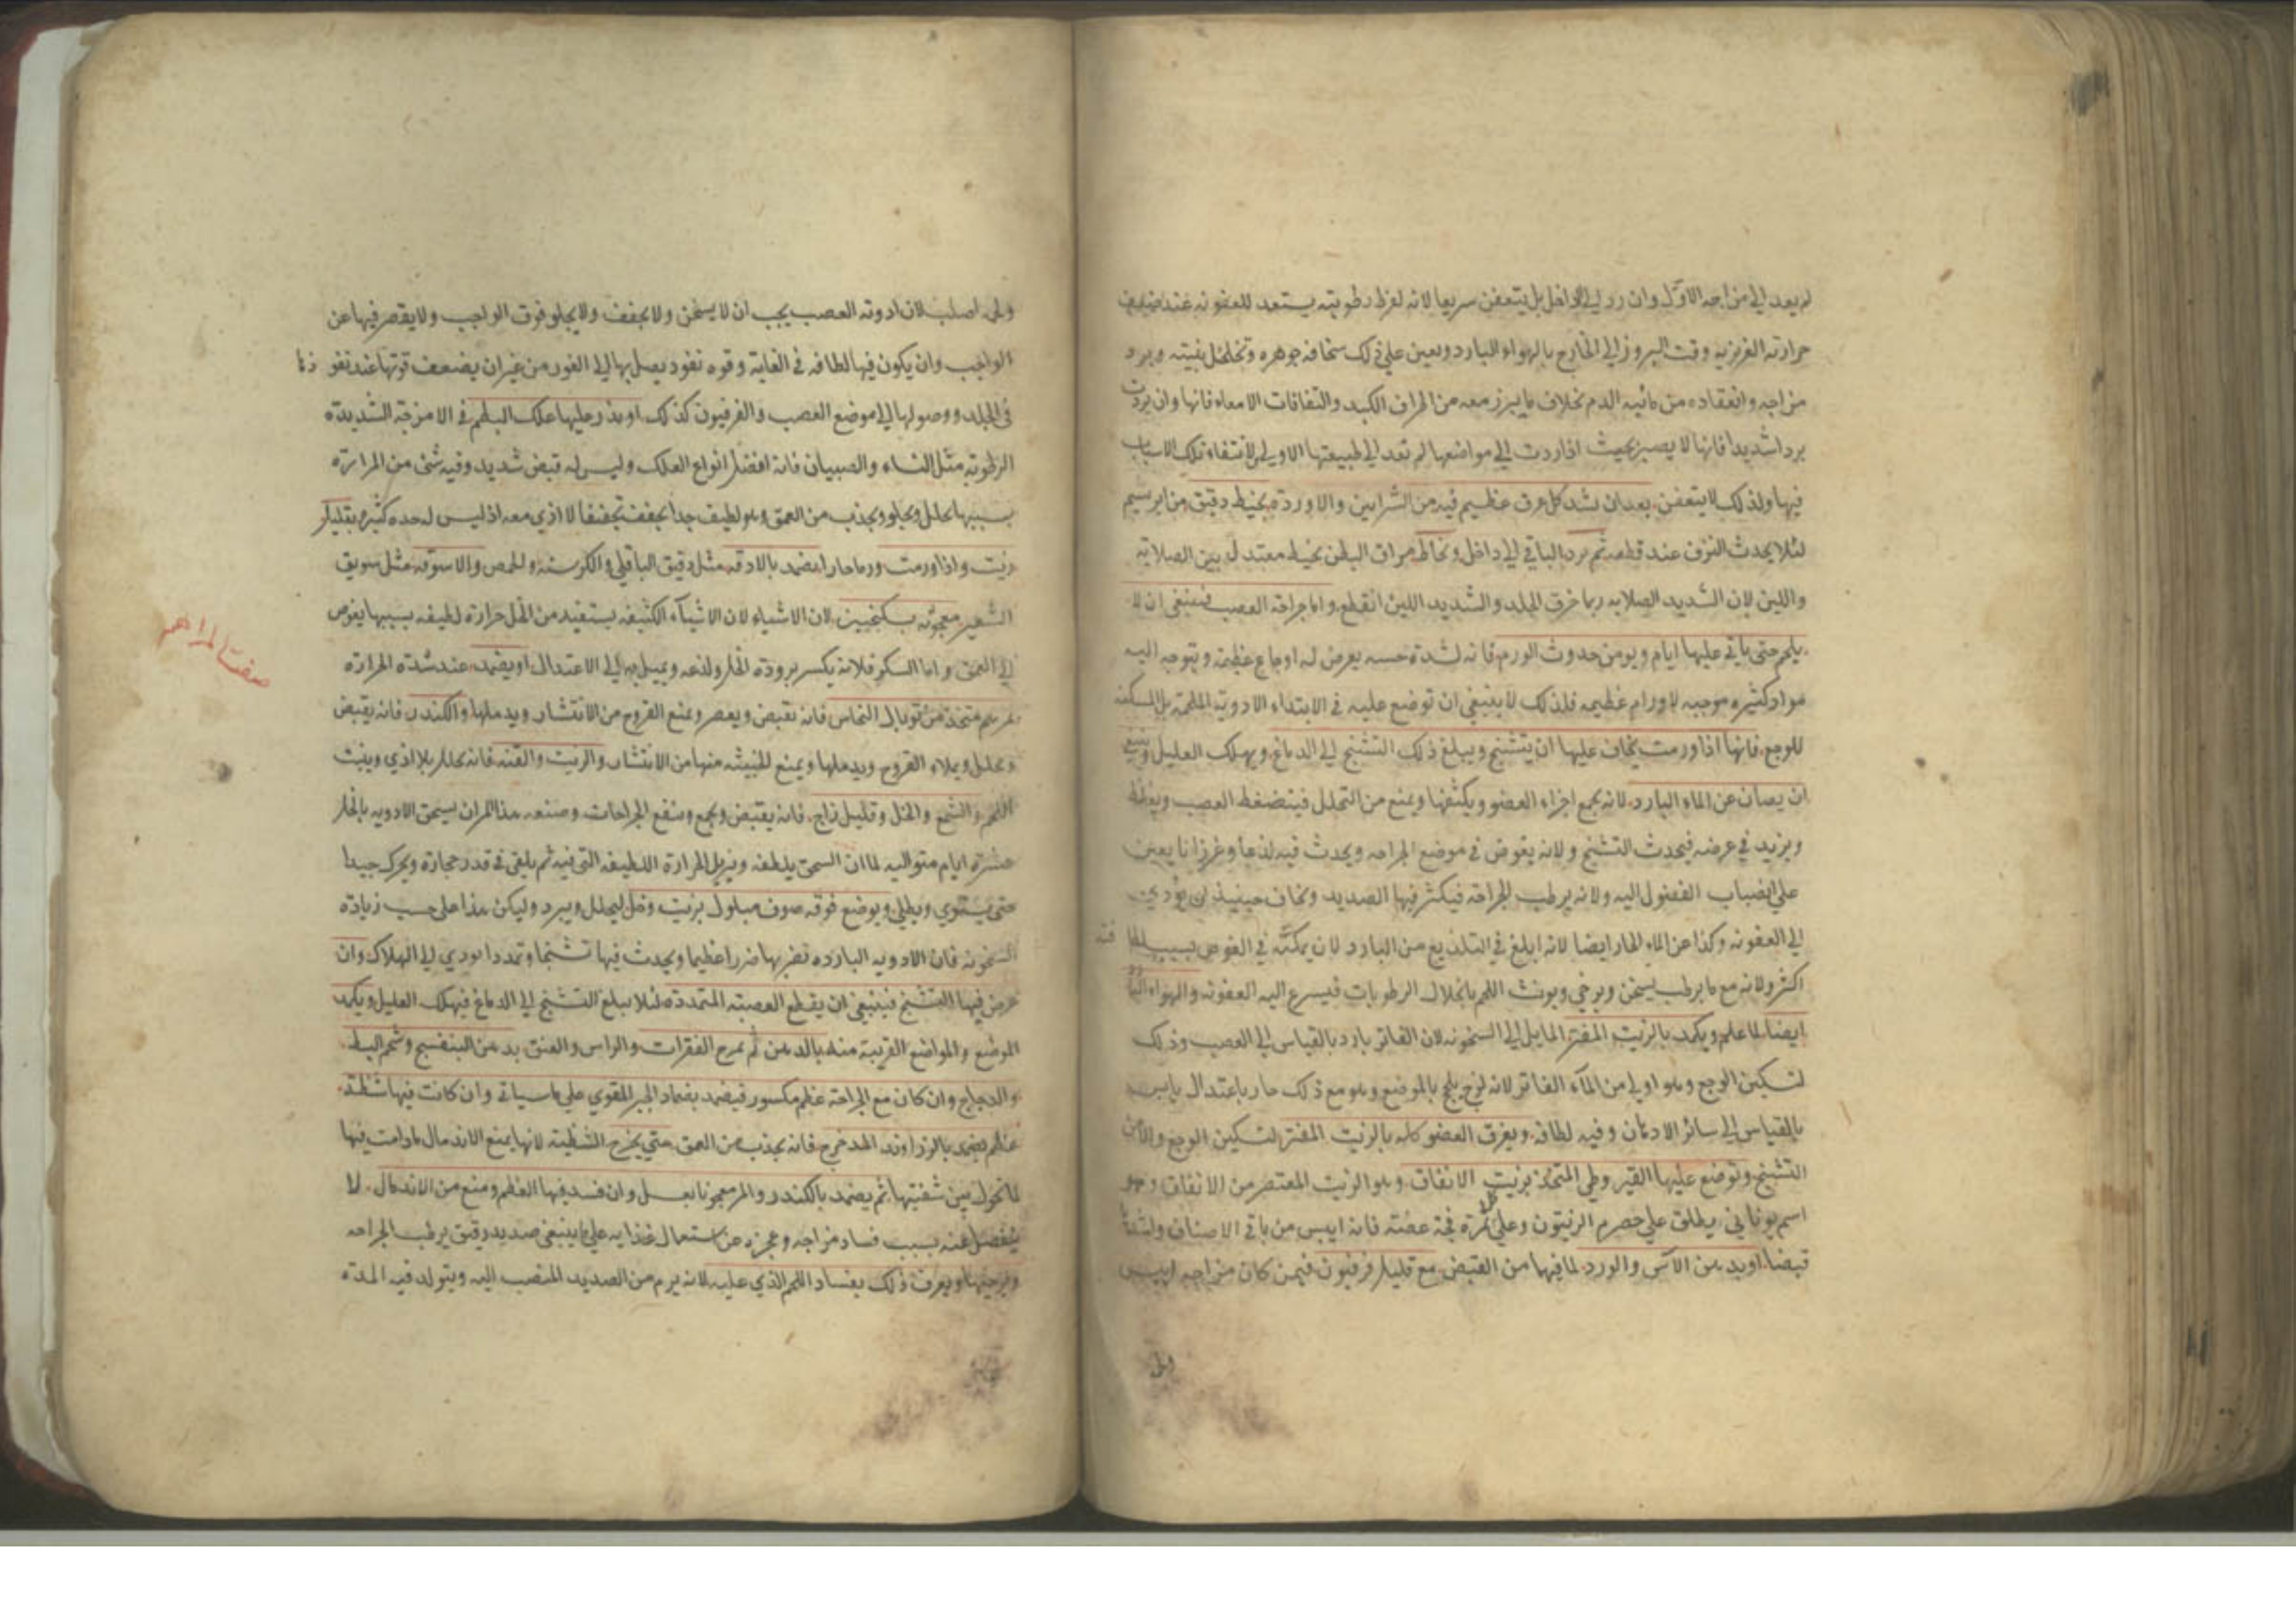 لم يعد الي مزاجه الاول وان رد الي الداخل بل يتعفن سريعا لانه لفرط رطوبته يستعد للعفونه عند ضعف
حرارته الغريزيه وقت البروز الي الخارج بالهواء البارد ويعين علي ذلك سخافه جوهره وتخلخل بنيته وبرد
مزاجه وانعقاده من مائيه الدم بخلاف ما يبرز معه من اطراف الكبد والتفافات الامعاء فانها وان بردت
بردا شديدا فانها لا يصير بحيث اذا ردت الي مواضعها لم تعد الي طبيعتها الاولي لانتفاء تلك الاسباب
فيها ولذلك لا يتعفن بعد ان يشد كل عرق عظيم فيه من الشرايين والاورده بخيط دقيق من ابريسم
لئلا يحدث النزف عند قطعه ثم يرد الباقي الي داخل ويخاط مراق البطن بخيط معتدل بين الصلابه
واللين لان الشديد الصلابه ربما خرق الجلد والشديد اللين انقطع واما جراحة العصب فينبغي ان لا
يلحم حتي ياتي عليها ايام ويومن حدوث الورم فانه لشدة حسه يعرض له اوجاع عظيمه ويتوجه اليه
مواد كثيره موجبه لاورام عظيمه فلذلك لا ينبغي ان توضع عليه في الابتداء الادويه الملحمة بل المسكنه
للوجع فانها اذا ورمت يخاف عليها ان يتشنج ويبلغ ذلك التشنج الي الدماغ ويهلك العليل وينبغي
ان يصان عن الماء البارد لانه يجمع اجزاء العضو ويكثفها ويمنع من التحلل فيتضغط العصب ويغلظ
ويزيد في عرضه فيحدث التشنج ولانه يغوص في موضع الجراحه ويحدث فيه لذعا وغرزانا يعين
علي انصباب الفضول اليه ولانه يرطب الجراحة فيكثر فيها الصديد ويخاف حينيذ ان يؤدي
الي العفونه وكذا عن الماء الحار ايضا لانه ابلغ في التلذيع من البارد لان يمكنه في الغوص بسبب لطا فته
اكثر ولانه مع ما يرطب يسخن ويرخي ويورث اللحم بانحلال الرطوبات فيسرع اليه العفونه والهواء البارد
ايضا لما علم ويكمد بالزيت المفتر المايل الي السخونه لان الفاتر بارد بالقياس الي العصب وذلك
لتسكين الوجع وهو اولي من الماء الفاتر لانه لزج يلحج بالموضع وهو مع ذلك حار باعتدال يابس
بالقياس الي سائر الادهان وفيه لطافه ويغرق العضو كله بالزيت المفتر لتسكين الوجع والامن
التشنج وتوضع عليها القيروطي المتخذ بزيت الانفاق وهو الزيت المعتصر من الانفاق وهو
اسم يوناني يطلق علي حصرم الزيتون وعلي كل ثمرة فجة عفصه فانه ايبس من باقي الاصناف واشدها
قبضا او بدهن الآس والورد لما فيها من القبض مع قليل فرفيون فيمن كان مزاجه ايبس
ولي
اصلب لان ادوية العصب يجب ان لا يسخن ولا يجفف ولا يجلو فوق الواجب ولا يقصر فيها عن
الواجب وان يكون فيها لطافه في الغاية وقوه نفوذ يصل بها الي الغور من غير ان يضعف قوتها عند نفو ذها
في الجلد ووصولها الي موضع العصب والفرفيون كذلك او يذر عليها علك البطم في الامزجة الشديدة
الرطوبة مثل النساء والصبيان فانه افضل انواع العلك وليس له قبض شديد وفيه شئ من المرارة
بسببها يحلل ويجلو ويجذب من العمق وهو لطيف جدا يجفف تجفيفا لا اذي معه اذ ليس له حده كثيره بقليل
زيت واذا ورمت ورما حارا يضمد بالادقه مثل دقيق الباقلي والكرسنه والحمص والاسوقه مثل سويق
الشعير معجونه بسكنجبين لان الاشياء لان الاشياء الكثيفه يستفيد من الخل حرارة لطيفه بسببها يغوص
الي العمق واما السكر فلانه يكسر برودة الخل ولذعه ويميل به الي الاعتدال او يضمد عند شدة الحرارة
بمرهم متخذ من توبال النحاس فانه يقبض ويعصر ويمنع القروح من الانتشار ويدملها والكندر فانه يقبض
ويحلل ويملاء القروح ويدملها ويمنع الخبيثه منها من الانتشار والزيت والقنه فانه يحلل بلا اذي وينبت
اللحم والشمع والخل وقليل زاج فانه يقبض ويجمع وينفع الجراحات وصنعه هذا المرهم ان يسحق الادويه بالخل
عشرة ايام متواليه لما ان السحق يلطفه ويزيل الحرارة اللطيفه التي فيه ثم يلقي في قدر حجارة ويحرك جيدا
حتي يستوي ويطلي ويوضع فوقه صوف مبلول بزيت وخل ليحلل ويبرد وليكن هذا علي حسب زيادة
السخونه فان الادويه البارده تضر بها ضررا عظيما ويحدث فيها تشنجا وتمددا يودي الي الهلاك وان
عرض فيها التشنج فينبغي ان يقطع العصبه المتمددة لئلا يبلغ التشنج الي الدماغ فيهلك العليل ويكمد
الموضع والمواضع القريبة منه بالدهن ثم يمرخ الفقرات والراس والعنق بدهن البنفسج وشحم البط
والدجاج وان كان مع الجراحة عظم مكسور فيضمد بضماد الجبر المقوي علي ما سياتي وان كانت فيها شظية
عظم يضمد بالزراوند المدحرج فانه يجذب من العمق حتي يخرج الشظية لانها يمنع الاندمال ما دامت فيها
لما تحول بين شفتيها ثم يضمد بالكندر والمر معجونا بعسل وان فسد فيها العظم ومنع من الاندمال لا
ينفصل عنه بسبب فساد مزاجه وعجزه عن استعمال غذايه علي ما ينبغي صديد رقيق يرطب الجراحه
ويرخيها ويعرف ذلك بفساد اللحم الذي عليه لانه يرم من الصديد المنصب اليه ويتولد فيه المدة
صفت المراهم